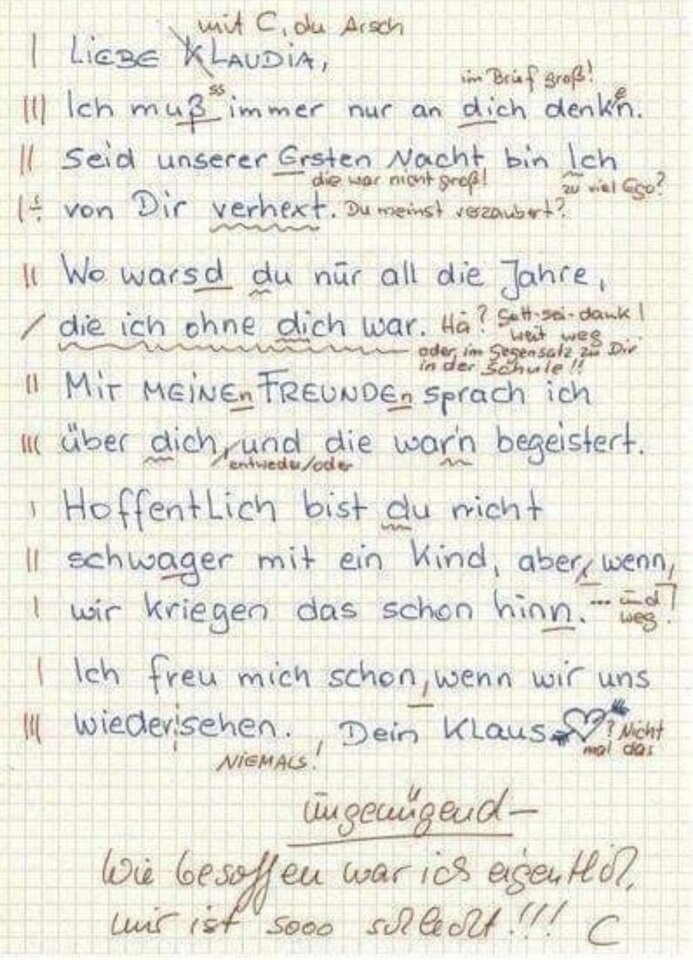 mit C, du Arsch
LIEBE KLAUDIA,
im Brief groß!
ss e
Ich muß immer nur an dich denk'n.
Seid unserer Ersten Nacht bin Ich
die war nicht groß! zu viel Ego?
von Dir verhext. Du meinst verzaubert?
Wo warsd du nur all die Jahre,
die ich ohne dich war. Hä? Gott-sei-dank!
weit weg
oder im Gegensatz zu Dir
in der Schule!!
MIT MEINEn FREUNDEn sprach ich
über dich, und die war'n begeistert.
entweder/oder
Hoffentlich bist du nicht
schwager mit ein Kind, aber, wenn,
wir kriegen das schon hinn. ... und
weg!
Ich freu mich schon, wenn wir uns
wieder sehen. Dein Klaus ? Nicht
mal das
NIEMALS!
ungenügend –
Wie besoffen war ich eigentlich,
mir ist sooo schlecht!!! C